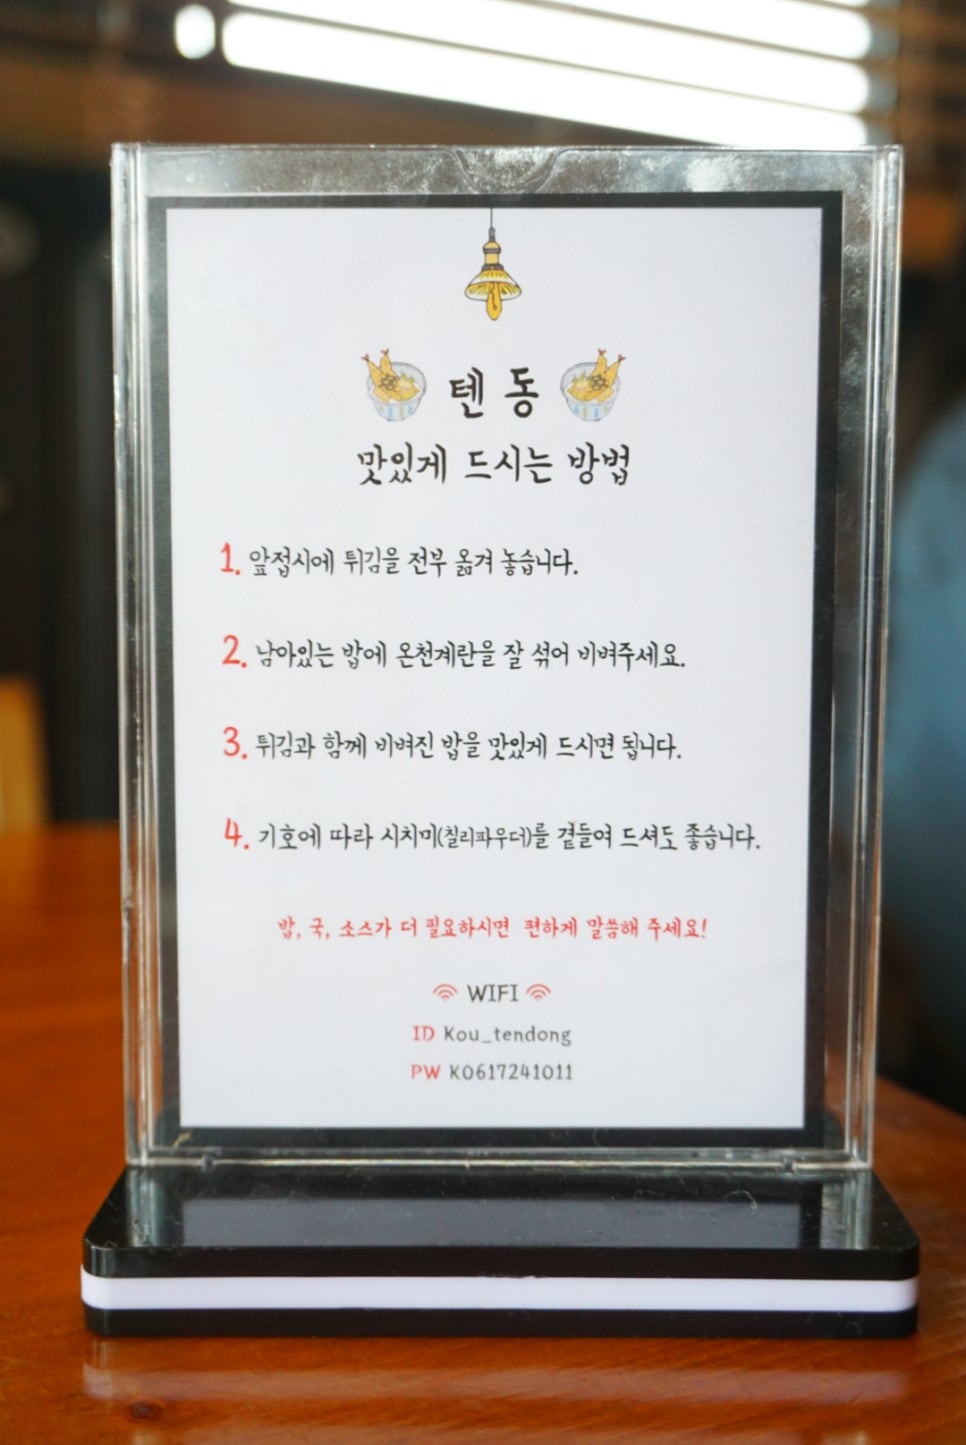 텐동
맛있게 드시는 방법
1. 앞접시에 튀김을 전부 옮겨 놓습니다.
2. 남아있는 밥에 온천계란을 잘 섞어 비벼주세요.
3. 튀김과 함께 비벼진 밥을 맛있게 드시면 됩니다.
4. 기호에 따라 시치미(칠리파우더)를 곁들여 드셔도 좋습니다.
밥, 국, 소스가 더 필요하시면 편하게 말씀해 주세요!
WIFI
ID Kou_tendong
PW K0617241011